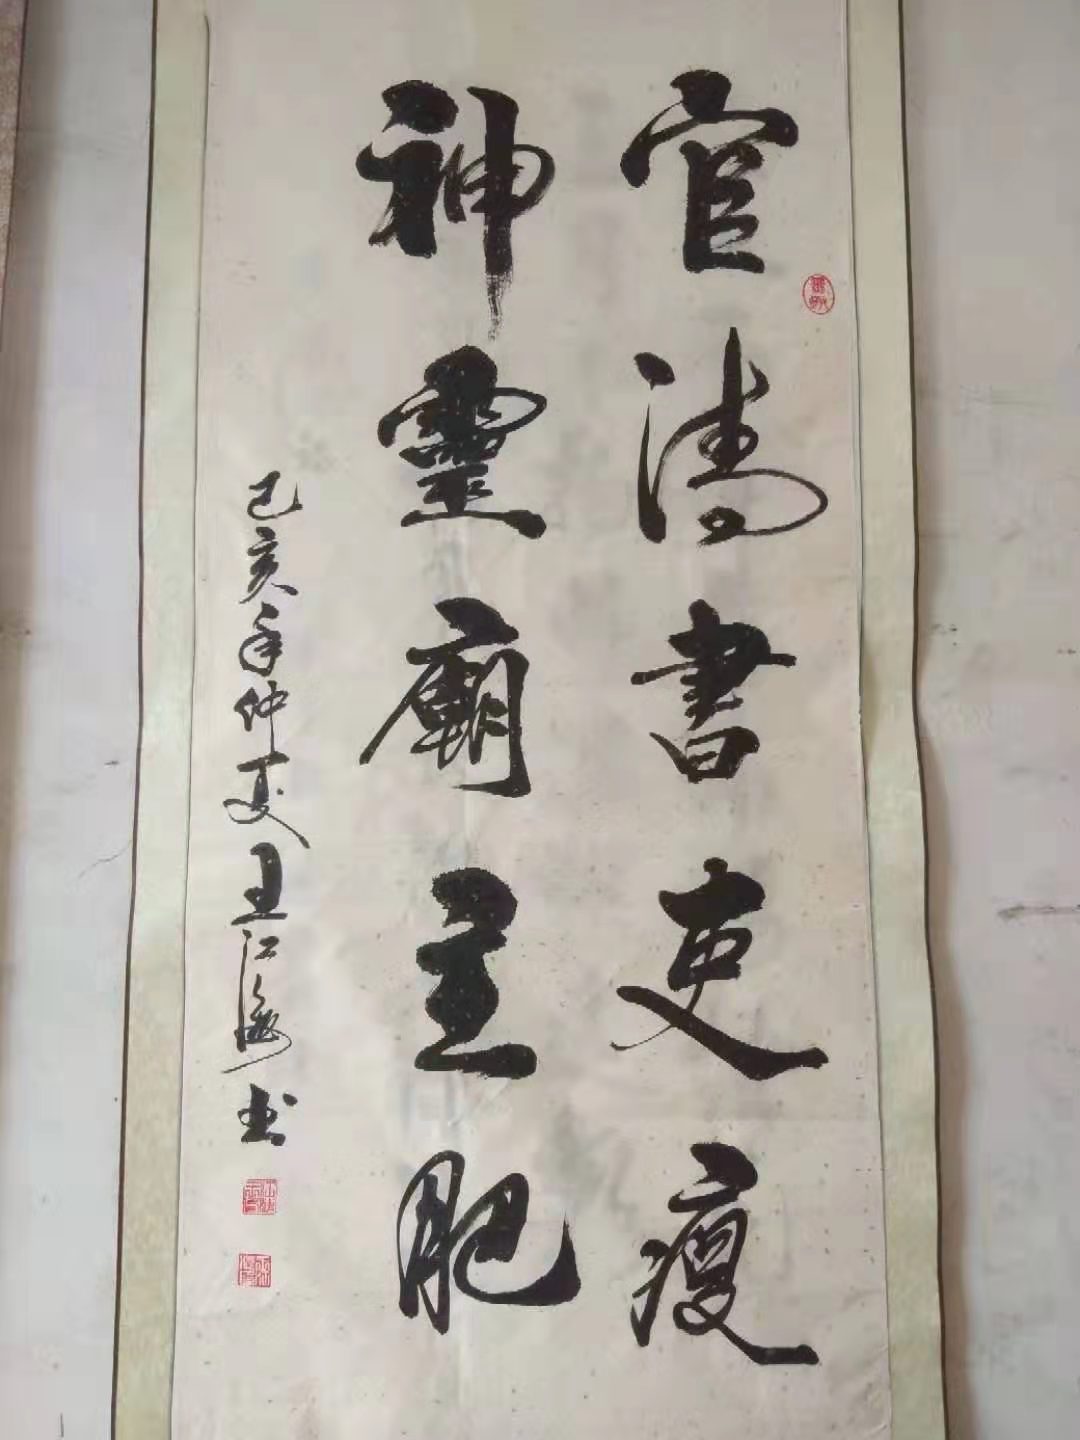 官清書吏瘦
神靈廟主肥
己亥年仲夏王江海书